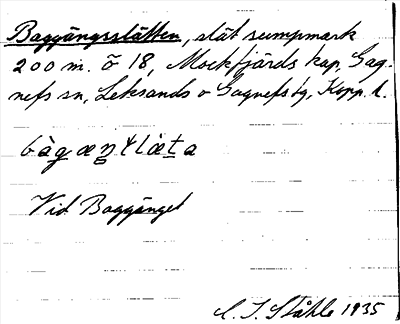 Baggängsslätten, slät sumpmark
200 m. ö 18, Mockfjärds kap. Gag-
nefs sn, Leksands o Gagnefs tg, Kopp. l.
Vid Baggänget
C. I. Ståhle 1935